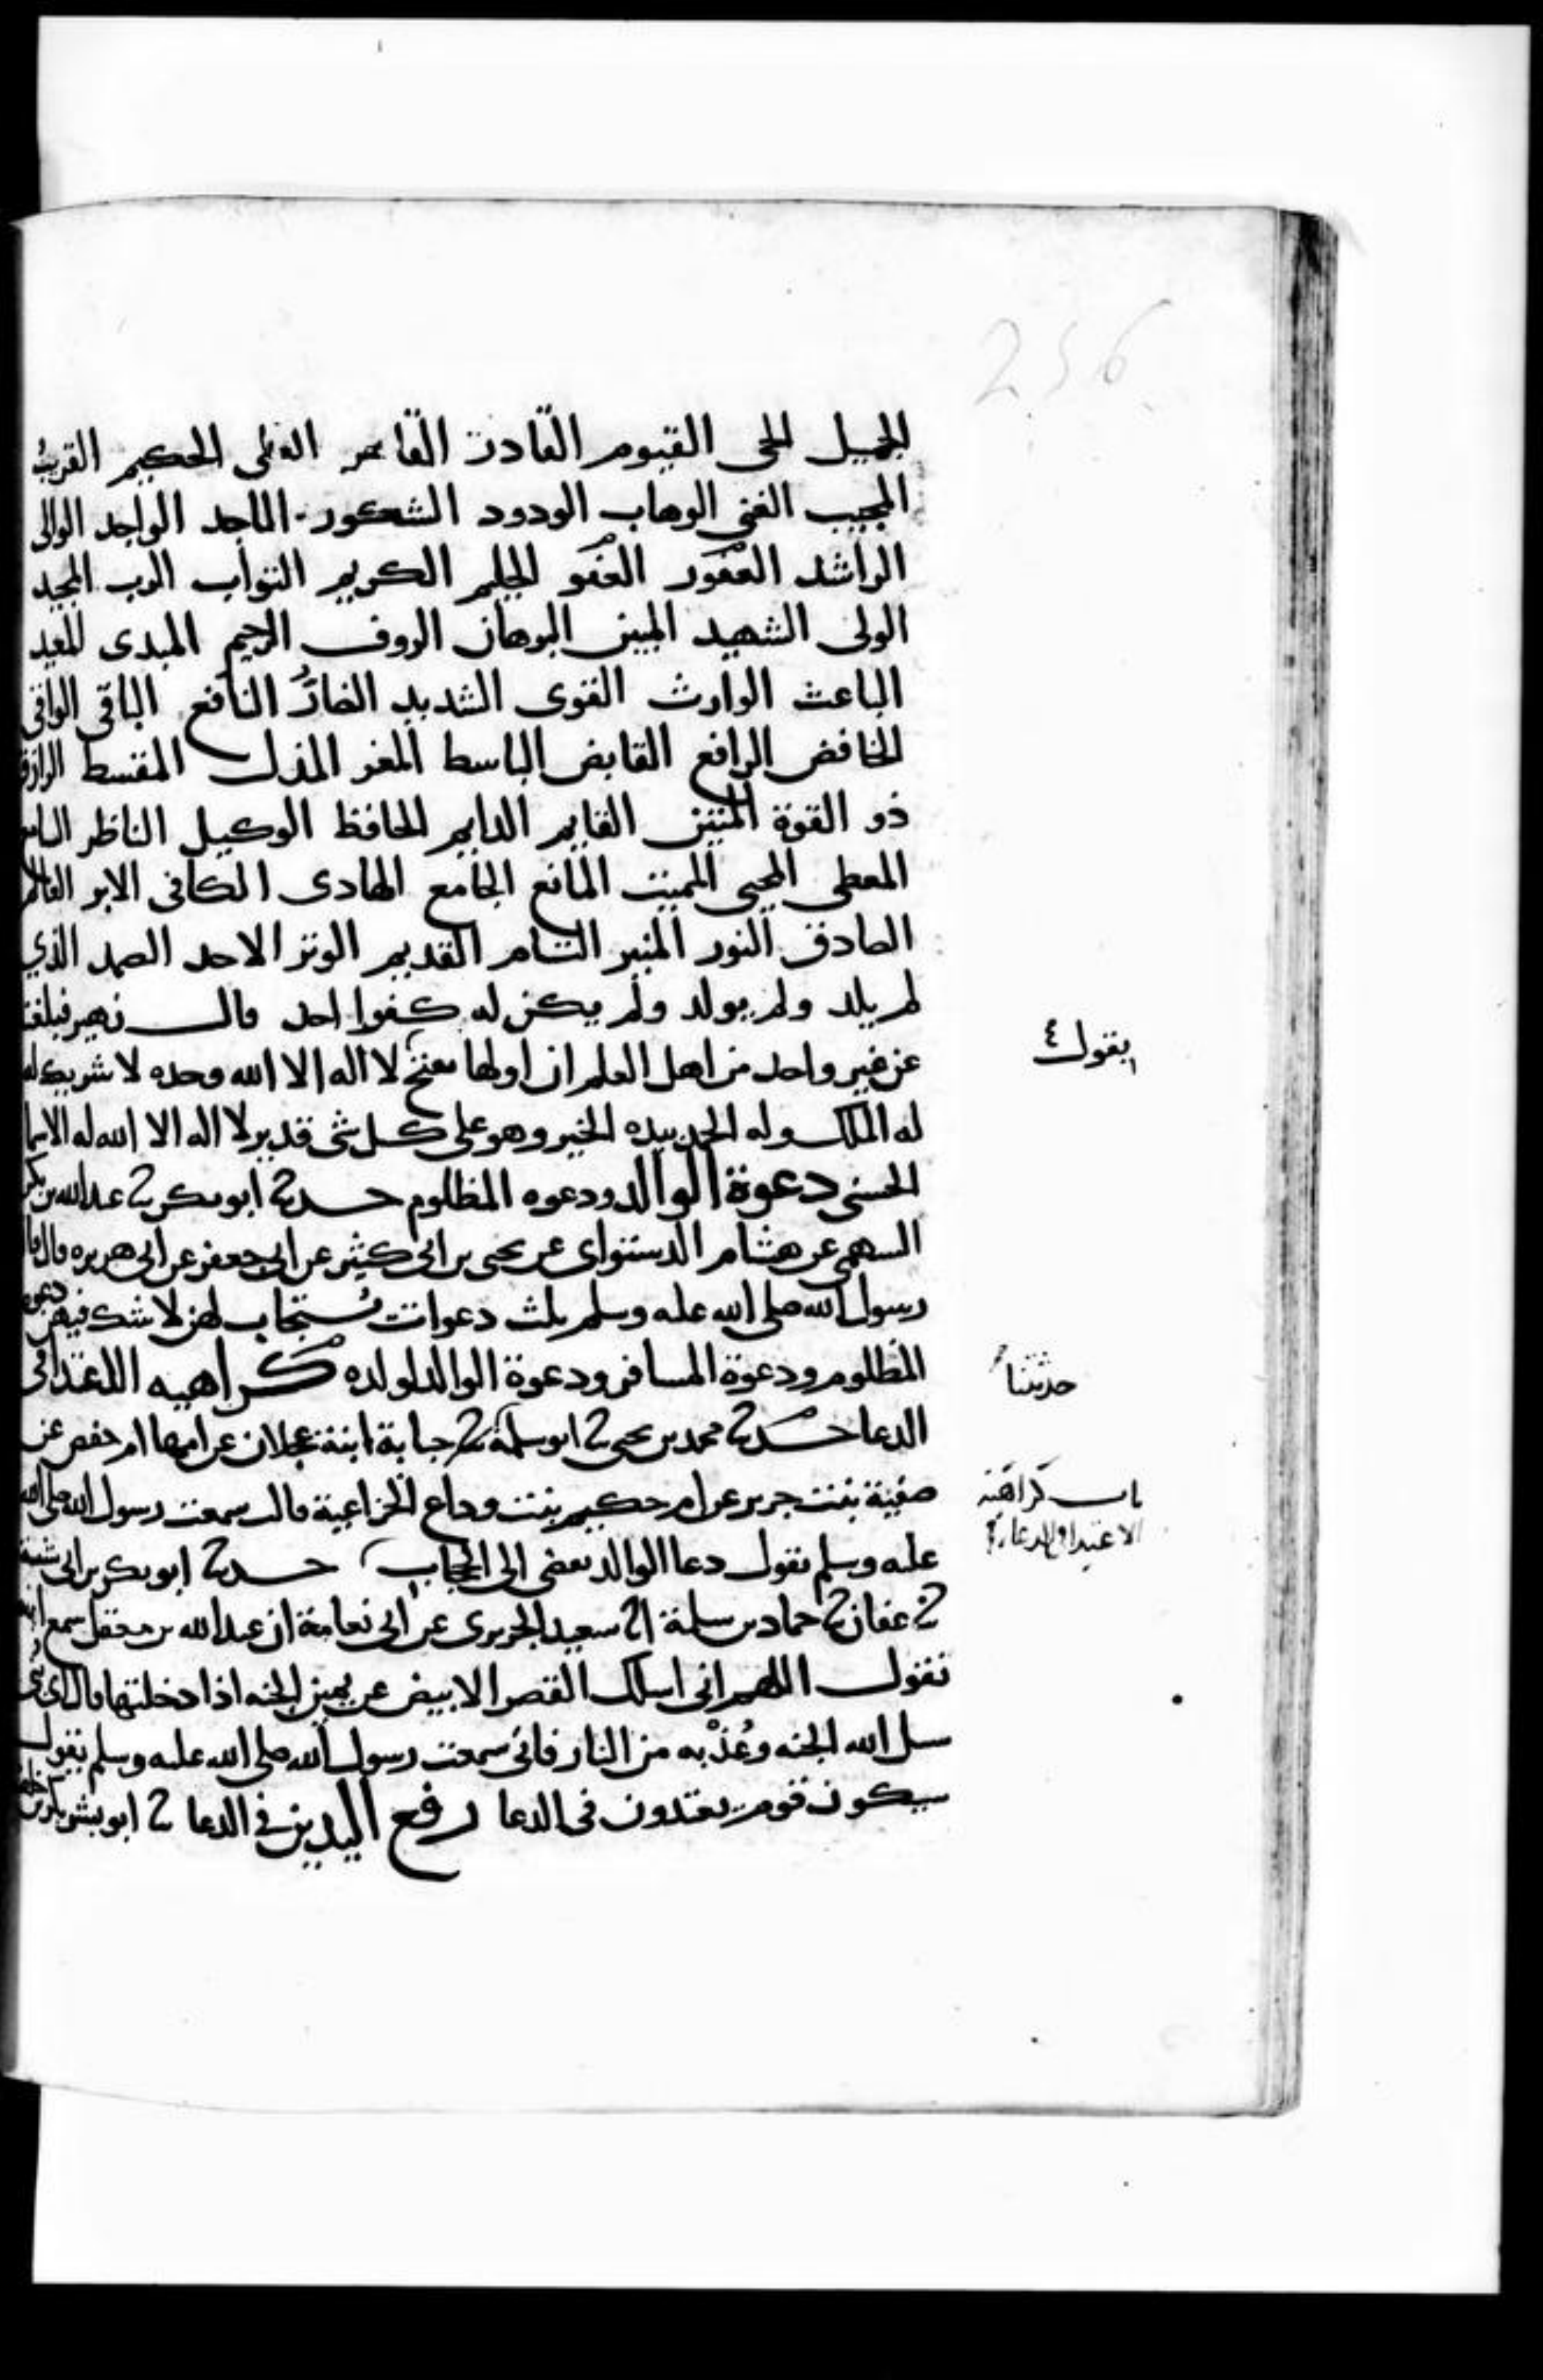 256
الجميل الحى القيوم القادر القاهر العلى الحكيم القريب
المجيب الغنى الوهاب الودود الشكور الماجد الواجد الوالى
الراشد العفور العفو الحليم الكريم التواب الرب المجيد
الولى الشهيد المبين البرهان الروف الرحيم المبدى المعيد
الباعث الوارث القوى الشديد الضار النافع الباقى الواقى
الخافض الرافع القابض الباسط المعز المذل المقسط الرازق
ذو القوة المتين القايم الدايم الحافظ الوكيل الناظر السامع
المعطى المحيى المميت المانع الجامع الهادى الكافى الابر العالم
الصادق النور المنير التام القديم الوتر الاحد الصمد الذي
لم يلد ولم يولد ولم يكن له كفوا احد قال زهير فبلغنا
عن غير واحد من اهل العلم ان اولها يفتح لا اله الا الله وحده لا شريك له
يقول
له الملك وله الحمد بيده الخير وهو على كل شى قدير لا اله الا الله له الاسما
الحسنى دعوة الوالد ودعوه المظلوم حدثنا ابو بكر ثنا عبد الله بن بكر
السهمى عن هشام الدستواى عن يحيى بن ابى كثير عن ابى جعفر عن ابى هريره قال قال
رسول الله صلى الله عليه وسلم ثلث دعوات تستجاب لهن لا شك فيهن دعوة
المظلوم ودعوة المسافر ودعوة الوالد لولده كراهيه الاعتدا فى
حدثتنا
الدعا حدثنا محمد بن يحيى ثنا ابو سلمة ثنا حبابة ابنة عجلان عن امها ام حفص عن
صفية بنت جرير عن ام حكيم بنت وداع الخزاعية قالت سمعت رسول الله صلى الله
باب كراهية
الاعتدا فى الدعاء
عليه وسلم يقول دعا الوالد يفضى الى الحجاب حدثنا ابو بكر بن ابى شيبة
ثنا عفان ثنا حماد بن سلمة انا سعيد الجريرى عن ابى نعامة ان عبد الله بن مغفل سمع ابنه
يقول اللهم انى اسلك القصر الابيض عن يمين الجنه اذا دخلتها فقال اى بنى
سل الله الجنه وعذ به من النار فانى سمعت رسول الله صلى الله عليه وسلم يقول
سيكون قوم يعتدون فى الدعا رفع اليدين فى الدعا ثنا ابو بشر بكر بن خلف